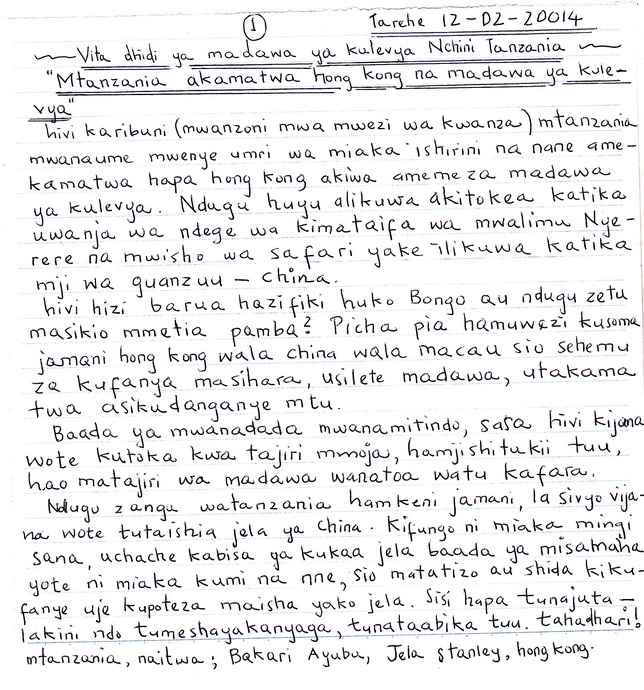 1
Tarehe 12-02-20014
~ Vita dhidi ya madawa ya kulevya Nchini Tanzania ~
"Mtanzania akamatwa hong kong na madawa ya kule-
vya"
hivi karibuni (mwanzoni mwa mwezi wa kwanza) mtanzania
mwanaume mwenye umri wa miaka ishirini na nane ame-
kamatwa hapa hong kong akiwa amemeza madawa
ya kulevya. Ndugu huyu alikuwa akitokea katika
uwanja wa ndege wa kimataifa wa mwalimu Nye-
rere na mwisho wa safari yake ilikuwa katika
mji wa guanzuu – china.
hivi hizi barua hazifiki huko Bongo au ndugu zetu
masikio mmetia pamba? Picha pia hamuwezi kusoma
jamani hong kong wala china wala macau sio sehemu
za kufanya masihara, usilete madawa, utakama
twa asikudanganye mtu.
Baada ya mwanadada mwanamitindo, sasa hivi kijana
wote kutoka kwa tajiri mmoja, hamjishitukii tuu,
hao matajiri wa madawa wanatoa watu kafara.
Ndugu zangu watanzania hamkeni jamani, la sivyo vija-
na wote tutaishia jela ya China. Kifungo ni miaka mingi
sana, uchache kabisa ya kukaa jela baada ya misamaha
yote ni miaka kumi na nne, sio matatizo au shida kiku-
fanye uje kupoteza maisha yako jela. Sisi hapa tunajuta –
lakini ndo tumeshayakanyaga, tunataabika tuu. tahadhari!
mtanzania, naitwa; Bakari Ayubu, Jela stanley, hong kong.